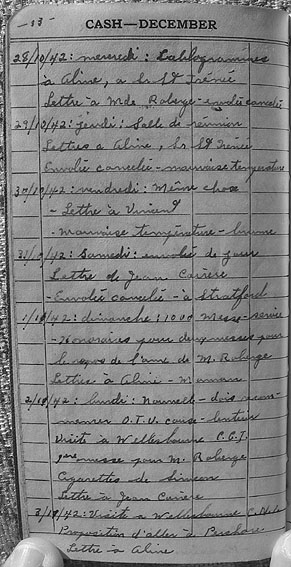 - 33 -
CASH—DECEMBER
28/10/42: mercredi: Cablogrammes
à Aline, a hr St Irénée
Lettre à Mde Roberge - envolée cancelée
29/10/42: jeudi: Salle de réunion
Lettres à Aline, hr St Irenée
Envolée cancelée - mauvaise température
30/10/42: vendredi: Même chose
- Lettre à Vincent
- Mauvaise température - brume
31/10/42: Samedi: envolée de jour
Lettre de Jean Cariere
- Envolée cancelée - à Stratford
1/11/42: dimanche: 1000 messe - service
- Honoraires pour deux messes pour
le repos de l'ame de M. Roberge
Lettre à Aline - Maman
2/11/42: lundi: Nouvelle - dois recom-
mencer O.T.U. cause - lenteur
Visit à Wellesbourne C.G.I.
1ere messe pour M. Roberge
Cigarettes de Simeon
Lettre à Jean Cariere
3/11/42: Visite à Wellesbourne
Proposition d'aller à Pershore
Lettre à Aline